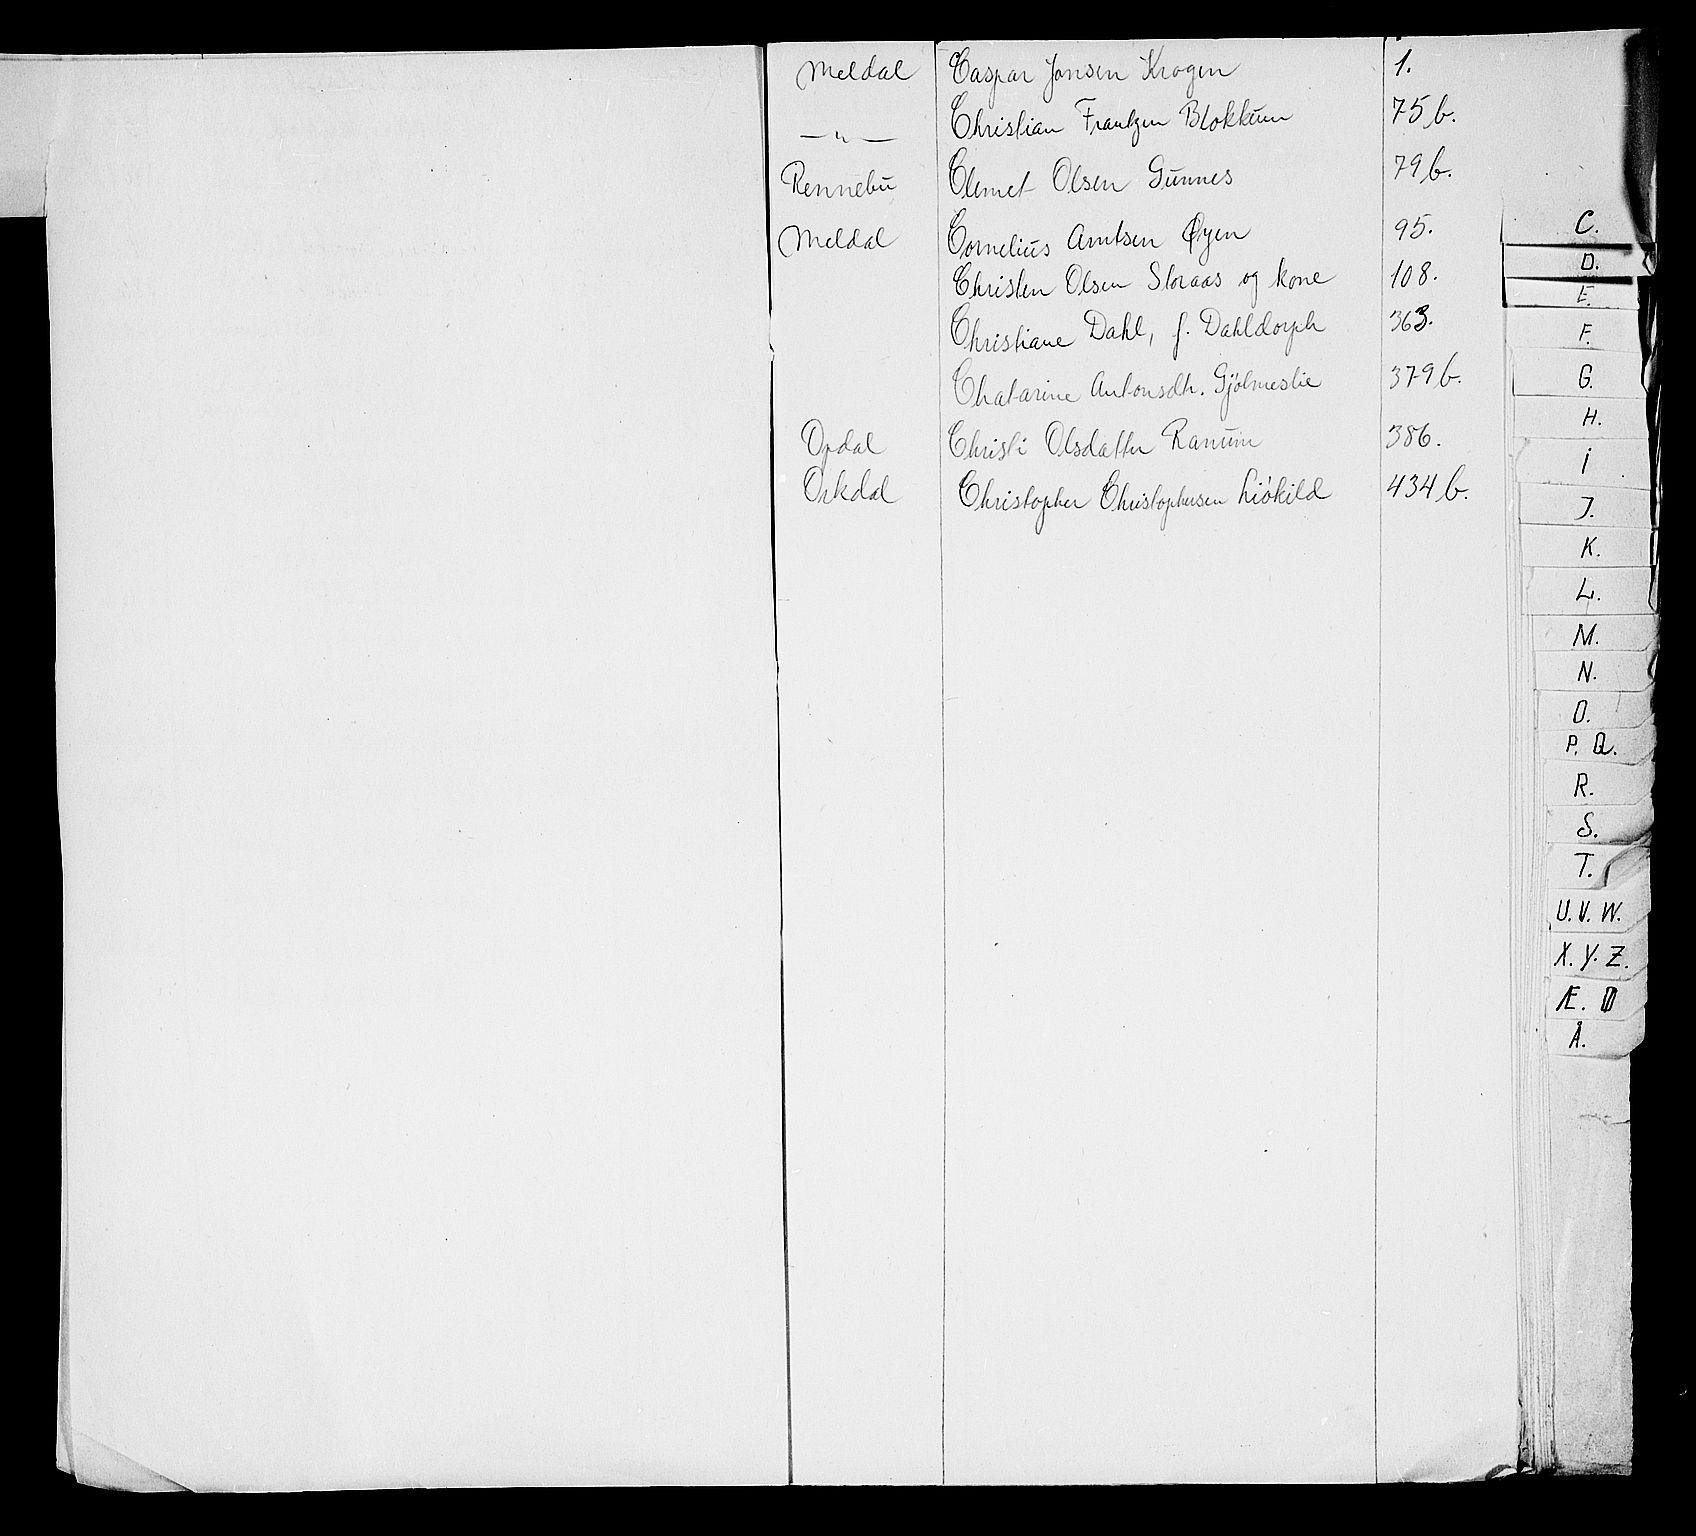 Meldal Caspar Jonsen Krogen 1.
—"— Christian Frantzen Blokkum 75b.
Rennebu Clemet Olsen Gunnes 79b.
Meldal Cornelius Arntsen Øyen 95.
Christen Olsen Storaas og kone 108.
Christiane Dahl, f. Dahldorph 363.
Chatarine Antonsdtr. Gjölmeslie 379b.
Opdal Christi Olsdatter Ranum 386.
Orkdal Christopher Christophersen Liökild 434b.
C.
D.
E.
F.
G.
H.
I
J.
K.
L.
M.
N.
O.
P. Q.
R.
S.
T.
U. V. W.
X. Y. Z.
Æ. Ø
Å.